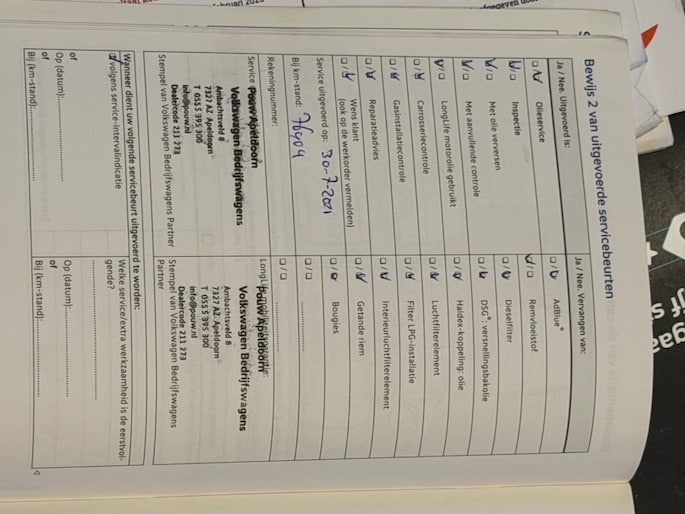 Bewijs 2 van uitgevoerde servicebeurten
Ja / Nee. Uitgevoerd is:
Olieservice
Inspectie
Met olie verversen
Met aanvullende controle
LongLife motorolie gebruikt
Carrosseriecontrole
Gasinstallatiecontrole
Reparatieadvies
Wens klant
(ook op de werkorder vermelden)
Service uitgevoerd op: 30-7-2021
Bij km-stand: 76904
Rekeningnummer:
Service
Pouw Apeldoorn
Volkswagen Bedrijfswagens
Ambachtsveld 8
7327 AZ Apeldoorn
T 055 5 395 300
info@pouw.nl
Dealercode 211 273
Stempel van Volkswagen Bedrijfswagens Partner
Ja / Nee. Vervangen van:
AdBlue®
Remvloeistof
Dieselfilter
DSG®: versnellingsbakolie
Haldex-koppeling: olie
Luchtfilterelement
Filter LPG-installatie
Interieurluchtfilterelement
Getande riem
Bougies
Pouw Apeldoorn
Volkswagen Bedrijfswagens
Ambachtsveld 8
7327 AZ Apeldoorn
T 055 5 395 300
info@pouw.nl
Dealercode 211 273
Stempel van Volkswagen Bedrijfswagens
Partner
Wanneer dient uw volgende servicebeurt uitgevoerd te worden:
volgens service-intervalindicatie
of
Op (datum):
of
Bij (km-stand):
Welke service/extra werkzaamheid is de eerstvol-
gende?
Op (datum):
of
Bij (km-stand):